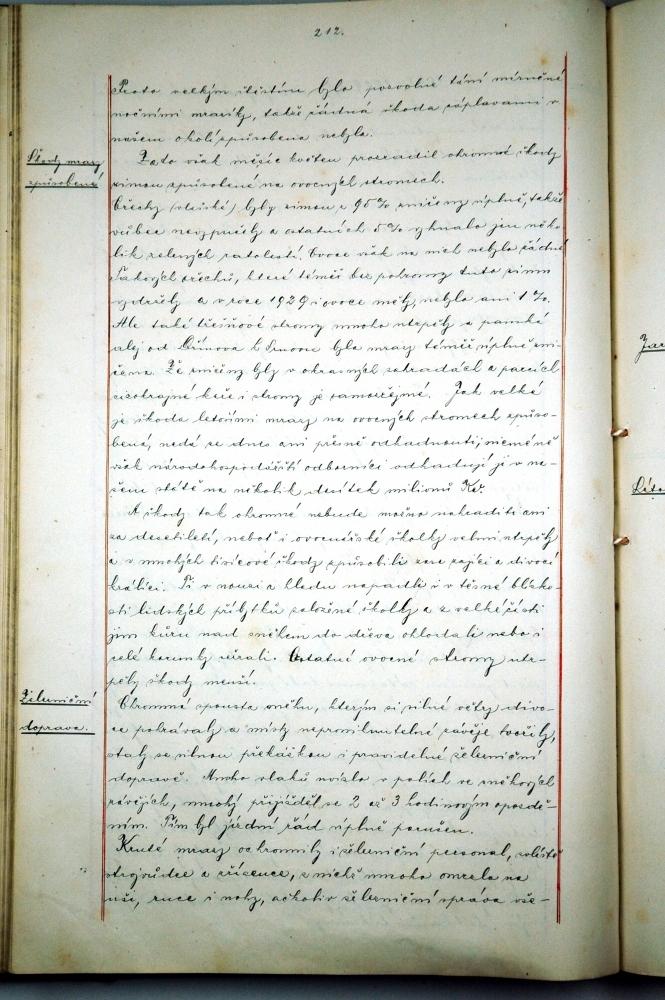 212.
Proto velkým štěstím bylo pozvolné tání mírněné
nočními mrazíky, takže žádná škoda záplavami v
našem okolí způsobena nebyla.
Škody mrazy
způsobené
Zato však měsíc květen prozradil ohromné škody
zimou způsobené na ovocných stromech.
Ořechy (vlašské) byly zimou z 95% zničeny úplně, takže
vůbec nevypučely a ostatních 5% vyhnalo jen něko-
lik zelených ratolestí. Ovoce však na nich nebylo žádné.
Takových ořechů, které téměř bez pohromy tuto zimu
vydržely a v roce 1929 i ovoce měly, nebylo ani 1%.
Ale také třešňové stromy mnoho utrpěly a panská
alej od k byla mrazy téměř úplně zni-
čena. Že zničeny byly v okrasných zahradách a parcích
cizokrajné keře i stromy je samozřejmé. Jak velké
je škoda letošními mrazy na ovocných stromech způso-
bená, nedá se dnes ani přesně odhadnouti, nicméně
však národohospodářští odborníci odhadují ji v na-
šem státě na několik desítek milionů Kč.
A škody tak ohromné nebude možno nahraditi ani
za desetiletí, neboť i ovocnářské školky velmi utrpěly
a v mnohých tisícové škody způsobili zase zajíci a divocí
králíci. Ti v nouzi a hladu napadli i v těsné blízko-
sti lidských příbytků založené školky a z velké části
jim kůru nad sněhem do dřeva ohlodali nebo i
celé korunky užrali. Ostatní ovocné stromy utr-
pěly škody menší.
Železniční
doprava.
Ohromné spousta sněhu, kterým si silné větry divo-
ce pohrávaly a místy neproniknutelné závěje tvořily,
staly se silnou překážkou i pravidelné železniční
dopravě. Mnoho vlaků uvízlo v polích ve sněhových
závějích, mnohý přijížděl se 2 až 3 hodinovým zpoždě-
ním. Tím byl jízdní řád úplně porušen.
Kruté mrazy ochromily i železniční personal, zvláště
strojvůdce a zřízence, z nichž mnoho omrzla na
uši, ruce i nohy, ačkoliv železniční správa vše-